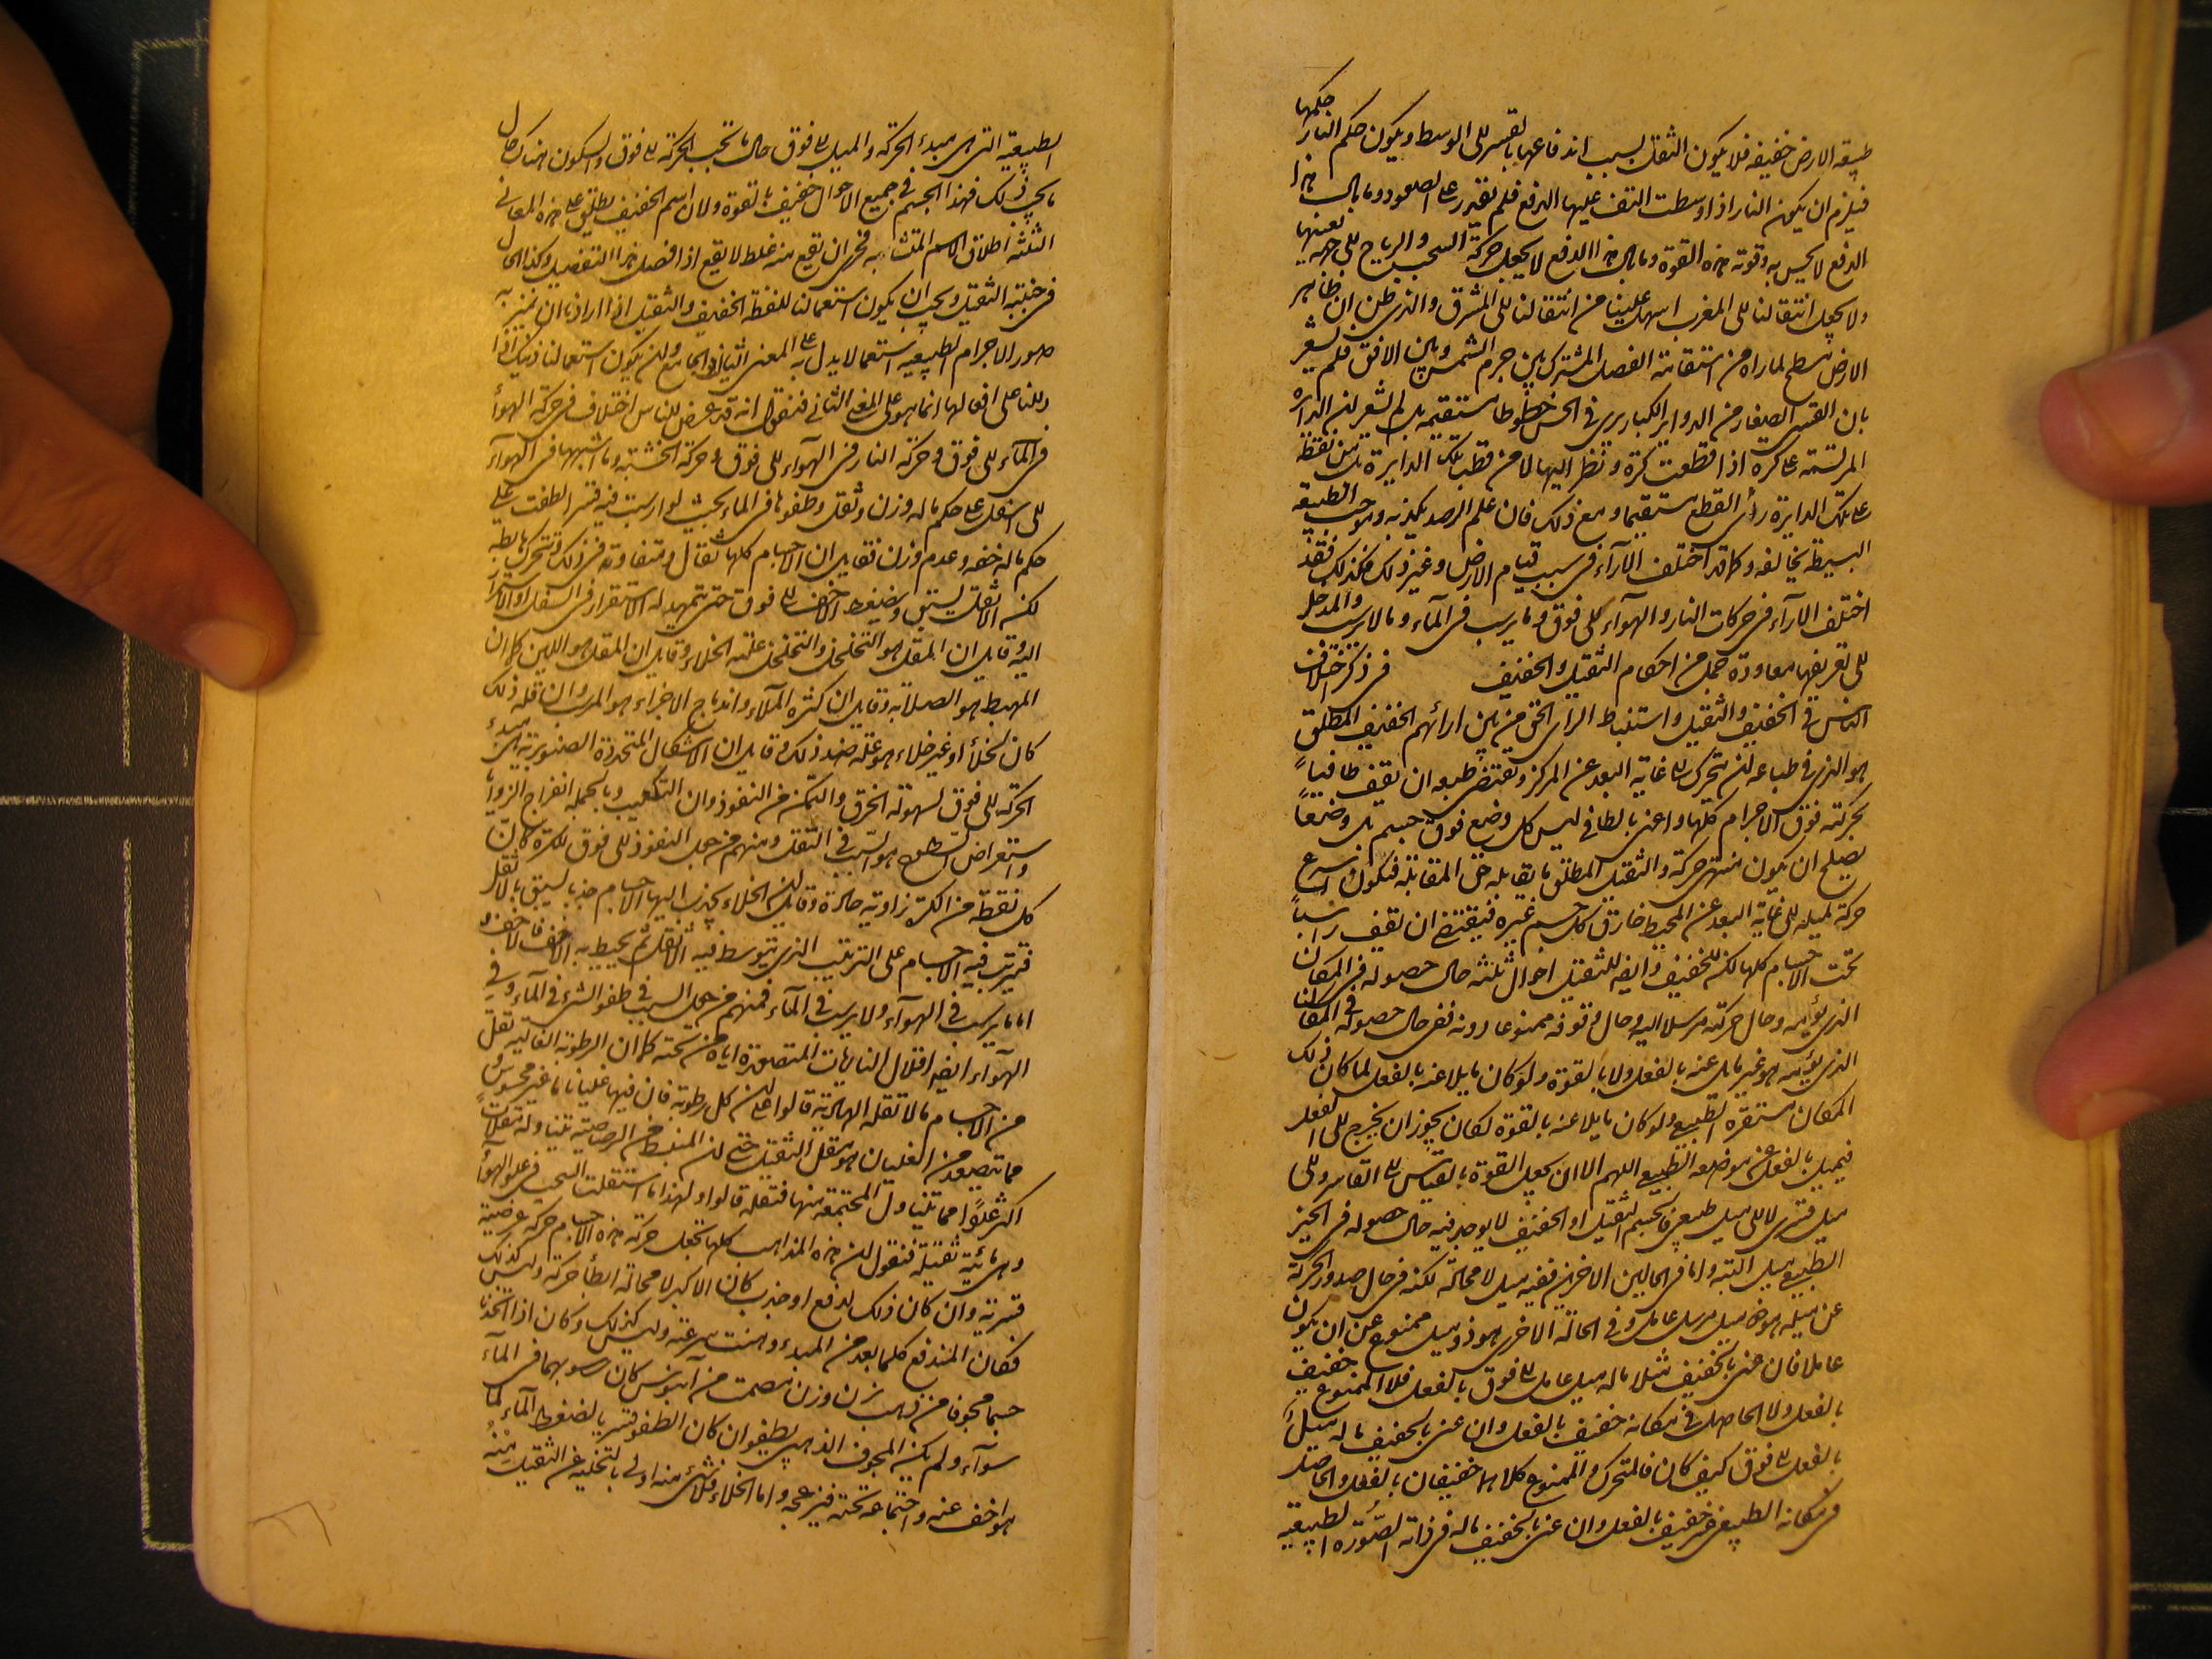 طبيعه الارض خفيفه فلا يكون الثقل بسبب اندفاعها بالقسر الى الوسط ويكون حكم النار حكمها
فيلزم ان يكون النار اذا اوسطت التف عليها الدفع فلم تقدر على الصعود وما بال هذا
الدفع لا يحس به وقوته هذه القوة وما بال هذا الدفع لا يجعل حركة السحب والرياح الى جهة بعينها
ولا يجعل انتقالنا الى المغرب اسهل علينا من انتقالنا الى المشرق والذى ظن ان ظاهر
الارض مسطح لما راه من استقامة الفصل المشترك بين جرم الشمس وبين الافق فلم يشعر
بان القسى الصغار من الدواير الكبار يرى فى الحس خطوطا مستقيمه بل لم يشعر ان الدايره
المرتسمه على كره اذا قطعت كره ونظر اليها لا من قطب تلك الدايرة بل من نقطة
على تلك الدايرة رأى القطع مستقيما ومع ذلك فان علم الرصد يكذبه وموجب الطبيعه
البسيطه يخالفه وكما قد اختلف الآراء فى سبب قيام الارض وغير ذلك فكذلك فقد
اختلف الآراء فى حركات النار والهوآء الى فوق وما يرسب فى المآء وما لا يرسب والمدخل
الى تعريفها معاودة جمل من احكام الثقيل والخفيف فى ذكر اختلاف
الناس فى الخفيف والثقيل واستنباط الراى الحق من بين ارائهم الخفيف المطلق
هو الذى فى طباعه ان يتحرك الى غاية البعد عن المركز ويقتضى طبعه ان يقف طافيا
بحركته فوق الاجرام كلها واعنى بالطافى ليس كل وضع فوق جسم بل وضعا
يصلح ان يكون منتهى حركة والثقيل المطلق ما يقابله حق المقابلة فتكون اسرع
حركة لميله الى غاية البعد عن المحيط خارق كل جسم غيره فيقتضى ان يقف راسبا
تحت الاجسام كلها لكنه للخفيف وايضا للثقيل احوال ثلثه حال حصوله فى المكان
الذى يؤمه وحال حركته مرسلا اليه وحال وقوفه ممنوعا دونه ففى حال حصوله فى المكان
الذى يؤمه هو غير مايل عنه بالفعل ولا بالقوة ولو كان مايلا عنه بالفعل لما كان ذلك
المكان مستقره الطبيعى ولو كان مايلا عنه بالقوة لكان يجوز ان يخرج الى الفعل
فيميل بالفعل عن موضعه الطبيعى اللهم الا ان يجعل القوة بالقياس الى القاسر والى
ميل قسرى لا الى ميل طبيعى فالجسم الثقيل او الخفيف لا يوجد فيه حال حصوله فى الحيز
الطبيعى ميل البتة واما فى الحالين الاخرين ففيه ميل لا محالة لكنه فى حال صدور الحركة
عن ميله هو ذو ميل مرسل عامل وفى الحالة الاخرى هو ذو ميل ممنوع عن ان يكون
عاملا فان عنى بالخفيف مثلا ما له ميل عامل الى فوق بالفعل فلا الممنوع خفيف
بالفعل ولا الحاصل فى مكانه خفيف بالفعل وان عنى بالخفيف ما له ميل
بالفعل الى فوق كيف كان فالمتحرك والممنوع كلاهما خفيفان بالفعل والحاصل
فى مكانه الطبيعى غير خفيف بالفعل وان عنى بالخفيف ما له فى ذاته الصورة الطبيعيه
الطبيعيه التى هى مبدء الحركة والميل الى فوق حال ما تجب الحركة الى فوق والسكون هناك حال
ما يجب ذلك فهذا الجسم فى جميع الاحوال خفيف بالقوة ولان اسم الخفيف يطلق على هذه المعانى
الثلثه اطلاق الاسم المتشابه فحرى ان تقع منه غلط لا يقع اذا فصل هذا التفصيل وكذا الحال
فى جنبة الثقيل ويجب ان يكون استعمالنا للفظة الخفيف والثقيل اذا اردنا ان نميز به
صور الاجرام الطبيعيه استعمالا يدل به على المعنى الثالث الجامع وان يكون استعمالنا ذلك اذا
دللنا على افعالها انما هو على المعنى الثانى فنقول انه قد عرض للناس اختلاف فى حركة الهوآ
فى المآء الى فوق وحركة النار فى الهوآء الى فوق وحركة الخشبه وما اشبهها فى الهوآء
الى اسفل على حكم ما له وزن وثقل وطفوها فى الماء بحيث لو ارسبت فيه قسرا طفت على
حكم ما له خفه وعدم وزن فقايل ان الاجسام كلها ثقال ومتفاوته فى ذلك وتتحرك هابطه
لكن الاثقل يسبق ويضغط الاخف الى فوق حتى يتمهد له الاستقرار فى السفل او الاستمرار
اليه وقايل ان المقل هو التخلخل والتخلخل علته الخلاء وقايل ان المقل هو اللين كما ان
المهبط هو الصلابه وقايل ان كثرة الملآء واندماج الاجزاء هو المرسب وان قلة ذلك
كان لخلأ او غير خلاء هو علة ضد ذلك وقايل ان الاشكال المتحددة الصنوبرية هى مبدء
الحركة الى فوق لسهولة الخرق والتمكن من النفوذ وان التكعيب وبالجمله انفراج الزوايا
واستعراض السطوح هو السبب فى الثقل ومنهم من جعل النفوذ الى فوق للكرة كأن
كل نقطة من الكرة زاوية حادة وقايل ان الخلاء يجذب اليها الاجسام جذبا يسبق بالاثقل
فيترتب فيه الاجسام على الترتيب الذى يتوسط فيه الاثقل ثم يحيط به الاخف فالاخف و
اما ما يرسب فى الهوآء ولا يرسب فى المآء فمنهم من جعل السبب فى طفو الشئ فى المآء وفى
الهوآء ايضا اقلال الناريات المتصعدة اياه من تحته كما ان الرطوبة الغالية تقل
من الاجسام ما لا تقله الهادية قالوا لان كل رطوبة فان فيها غليانا ما غير محسوس
مما يتصعد من الغليان هو مقل الثقيل حتى ان المنبسط من الرصاصيه تتناوله مقلات
اكثر عددا مما يتناول المجتمعة منها فتقله قالوا ولهذا ما استقلت السحب فى علو الهوآ
وهى مائية ثقيلة فنقول ان هذه المذاهب كلها تجعل حركة هذه الاجسام حركة عرضية
قسرية وان كان ذلك لدفع او جذب كان الاكبر لا محالة ابطأ حركة وليس كذلك
فكان المندفع كلما بعد من المبدء وهنت سرعته وليس كذلك وكان اذا اتخذنا
جسما مجوفا من ذهب يزن وزن مصمت من آبنوس كان رسوبهما فى المآء
سوآء ولم يكن المجوف الذهبى يطفو ان كان الطفو قسريا لضغط المآء لما
هو اخف عنه واجتماعه تحته فيزعجه واما الخلاء فلا شئ منه اولى بالتخليه عن الثقيل منه